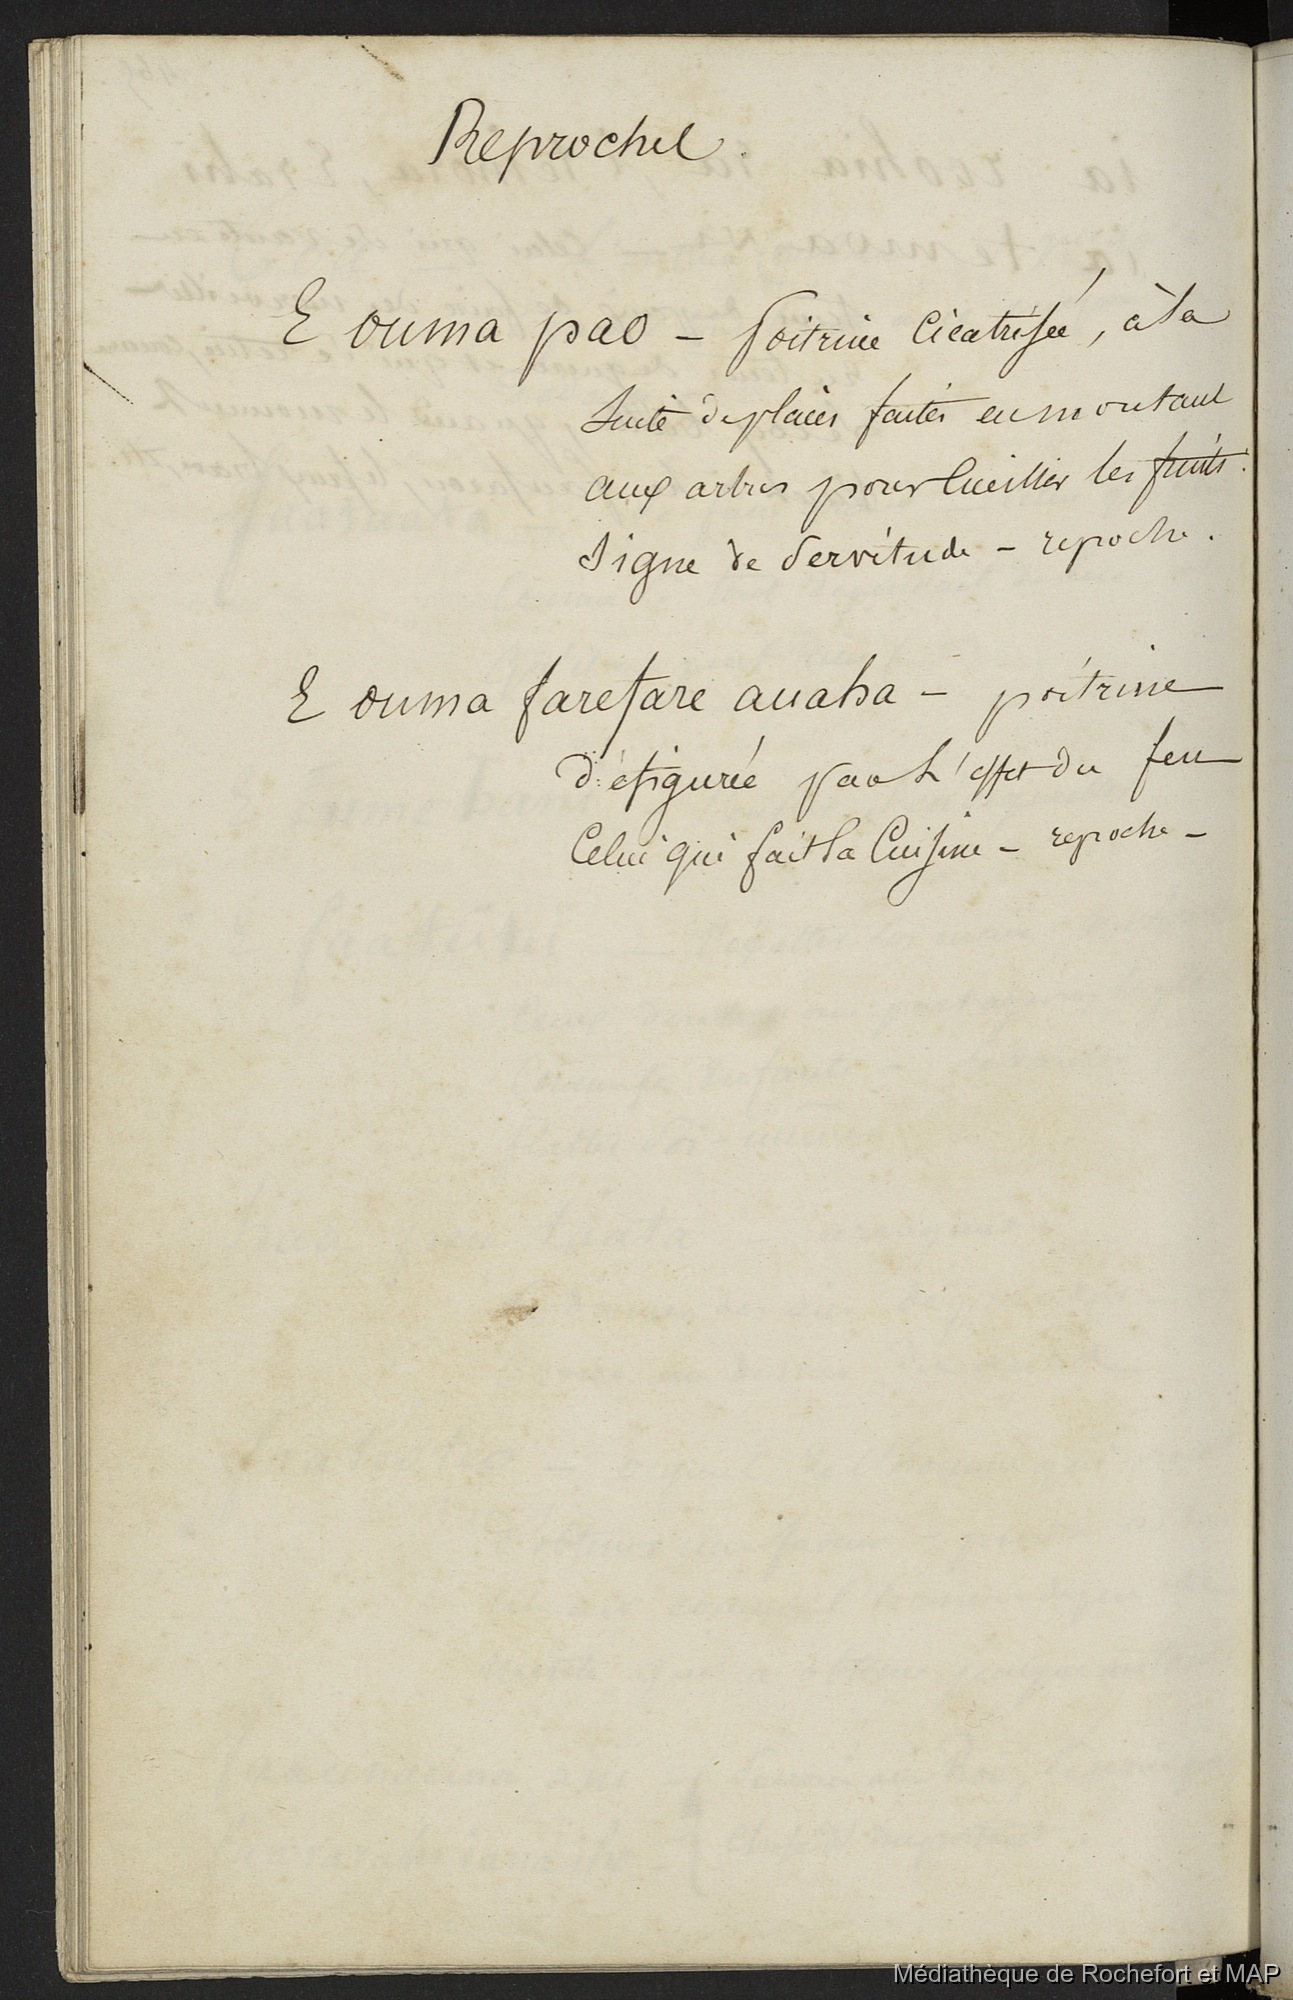 Reproches
E ouma pao — poitrine Cicatrisée, à la
suite de plaies faites en montant
aux arbres pour Cueillir les fruits.
Signe de Servitude — repoche.
E ouma farefare auaha — poitrine
défigurée par l'effet du feu
Celui qui fait la Cuisine — repoche —
Médiathèque de Rochefort et MAP